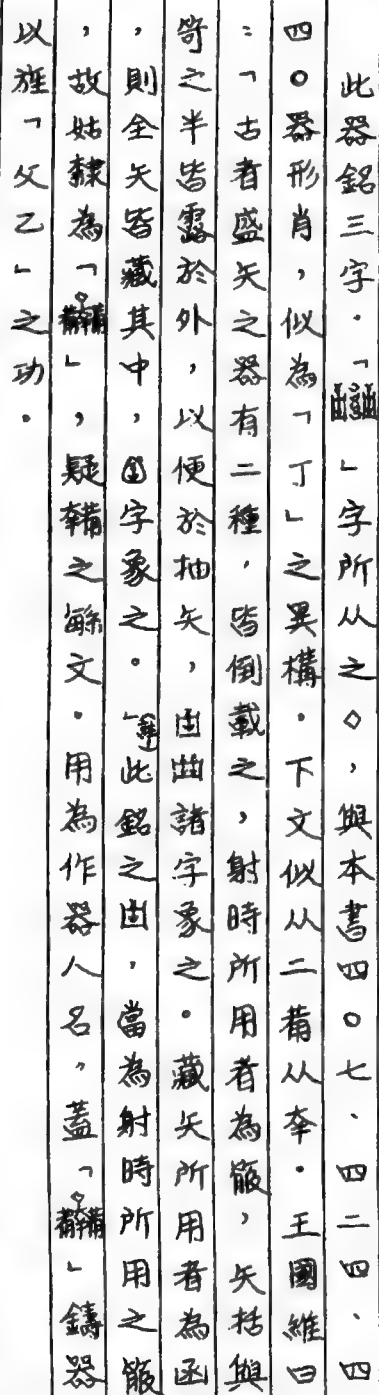 此器銘三字．「」字所从之◇，與本書四〇七、四二四、四
四〇器形肖，似為「丁」之異構．下文似从二𤰈从㚔．王國維曰
：「古者盛矢之器有二種，皆倒載之，射時所用者為箙，矢括與
笴之半皆露於外，以便於抽矢，諸字象之。藏矢所用者為函
，則全矢皆藏其中，字象之。」此銘之，當為射時所用之箙
，故姑隸為「」，疑之緐文．用為作器人名，蓋「」鑄器
以旌「父乙」之功．